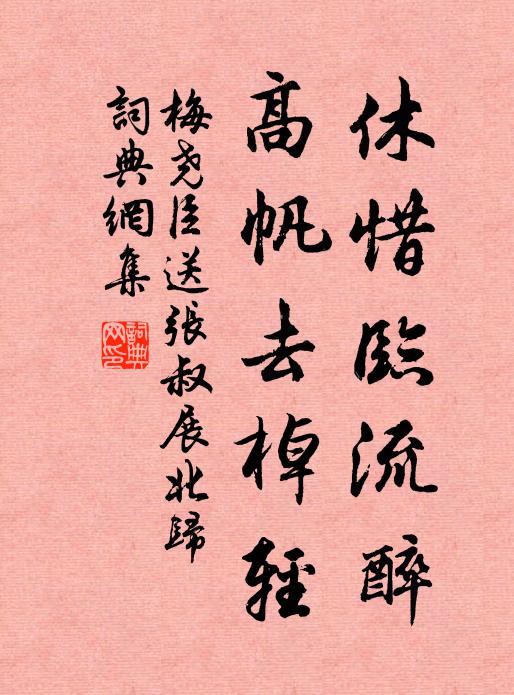 休惜臨流醉
高帆去棹輕
梅堯臣送張叔展北歸
詞典網集
詞典網印